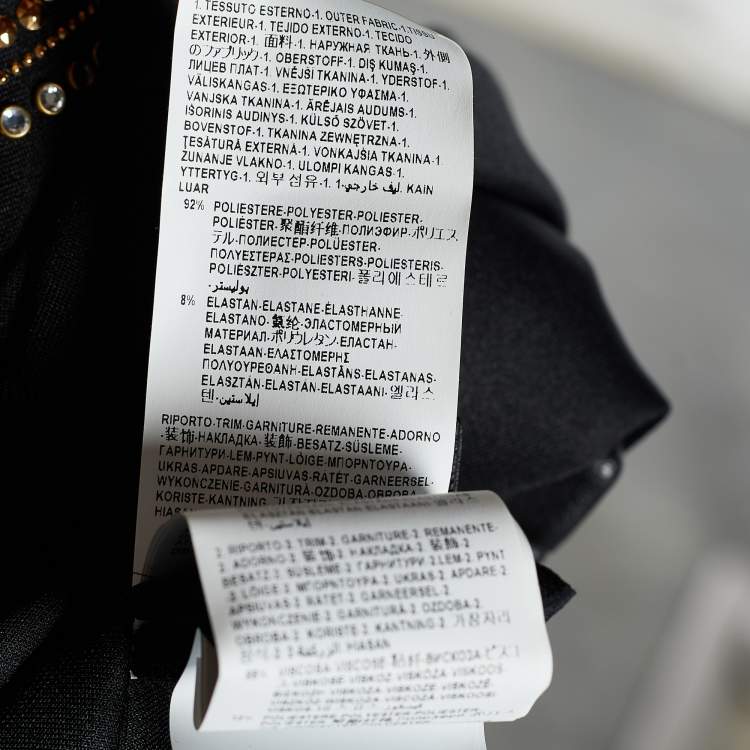 1. TESSUTO ESTERNO-1. OUTER FABRIC-1. TISSU
EXTERIEUR-1. TEJIDO EXTERNO-1. TECIDO
EXTERIOR-1. 面料-1. НАРУЖНАЯ ТКАНЬ-1. 外側
のファブリック-1. OBERSTOFF-1. DIŞ KUMAŞ-1.
ЛИЦЕВ ПЛАТ-1. VNĚJŠÍ TKANINA-1. YDERSTOF-1.
VÄLISKANGAS-1. ΕΞΩΤΕΡΙΚΟ ΥΦΑΣΜΑ-1.
VANJSKA TKANINA-1. ĀRĒJAIS AUDUMS-1.
IŠORINIS AUDINYS-1. KÜLSŐ SZÖVET-1.
BOVENSTOF-1. TKANINA ZEWNĘTRZNA-1.
ȚESĂTURĂ EXTERNĂ-1. VONKAJŠIA TKANINA-1
ZUNANJE VLAKNO-1. ULOMPI KANGAS-1.
YTTERTYG-1. 외부 섬유-1. ليف خارجي-1. KAIN
LUAR
92% POLIESTERE-POLYESTER-POLIESTER.
POLIÉSTER-聚酯纤维-ПОЛИЭФИР-ポリエス
テル-ПОЛИЕСТЕР-POLÜESTER.
ΠΟΛΥΕΣΤΕΡΑΣ-POLIESTERS-POLIESTERIS-
POLIÉSZTER-POLYESTERI-폴리에스테르
بوليستر-
8% ELASTAN-ELASTANE-ÉLASTHANNE-
ELASTANO-氨纶-ЭЛАСТОМЕРНЫЙ
МАТЕРИАЛ-ポリウレタン-ЕЛАСТАН-
ELASTAAN-ΕΛΑΣΤΟΜΕΡΗΣ
ΠΟΛΥΟΥΡΕΘΑΝΗ-ELASTĀNS-ELASTANAS-
ELASZTÁN-ELASTAN-ELASTAANI-엘라스
텐-إيلاستين
RIPORTO-TRIM-GARNITURE-REMANENTE-ADORNO
-装饰-НАКЛАДКА-装飾-BESATZ-SÜSLEME-
ГАРНИТУРИ-LEM-PYNT-LÖIGE-ΜΠΟΡΝΤΟΥΡΑ-
UKRAS-APDARE-APSIUVAS-RÁTÉT-GARNEERSEL-
WYKOŃCZENIE-GARNITURĂ-OZDOBA-OBROBA-
KORISTE-KANTNING-가장자리
HIASAN
2. RIPORTO-2. TRIM-2. GARNITURE-2. REMANENTE-
2. ADORNO-2. 装饰-2. НАКЛАДКА-2. 装飾-2
BESATZ-2. SÜSLEME-2. ГАРНИТУРИ-2. LEM-2. PYNT
-2. LÖIGE-2. ΜΠΟΡΝΤΟΥΡΑ-2. UKRAS-2. APDARE-2.
APSIUVAS-2. RÁTÉT-2. GARNEERSEL-2.
WYKOŃCZENIE-2. GARNITURĂ-2. OZDOBA-2.
OBROBA-2. KORISTE-2. KANTNING-2. 가장자리
HIASAN
VISCOSA VISCOSE 粘纤-ВИСКОЗА